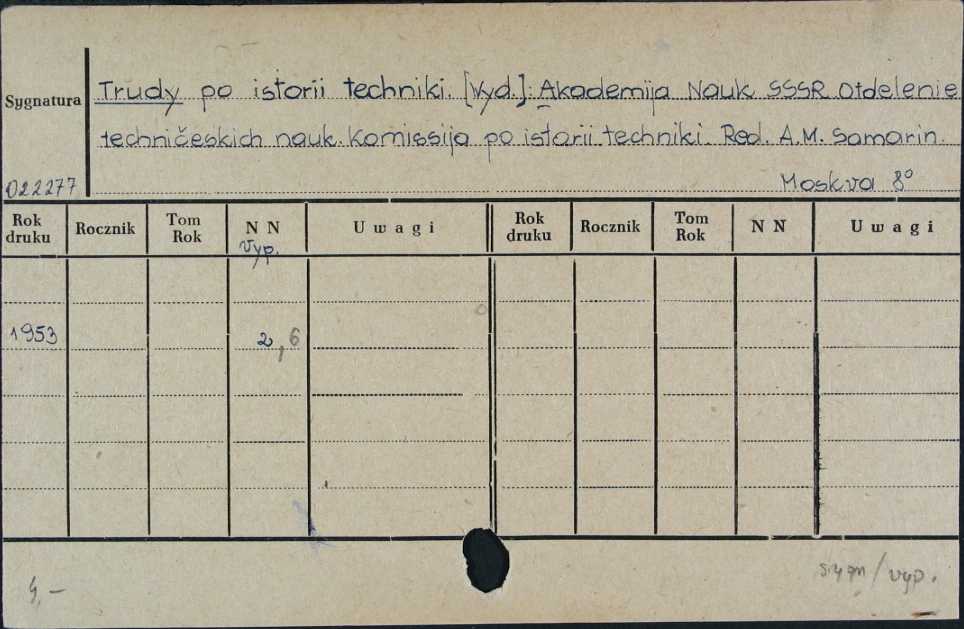 Sygnatura
Trudy po istorii techniki. [Vyd.]: Akademija Nauk SSSR Otdelenie
techničeskich nauk. Komissija po istorii techniki. Red. A.M. Samarin.
022277
Moskva 8°
Rok druku Rocznik Tom Rok N N Uwagi Rok druku Rocznik Tom Rok N N Uwagi
Vyp.
1953 2, 6
4,—
sygn/vyp.